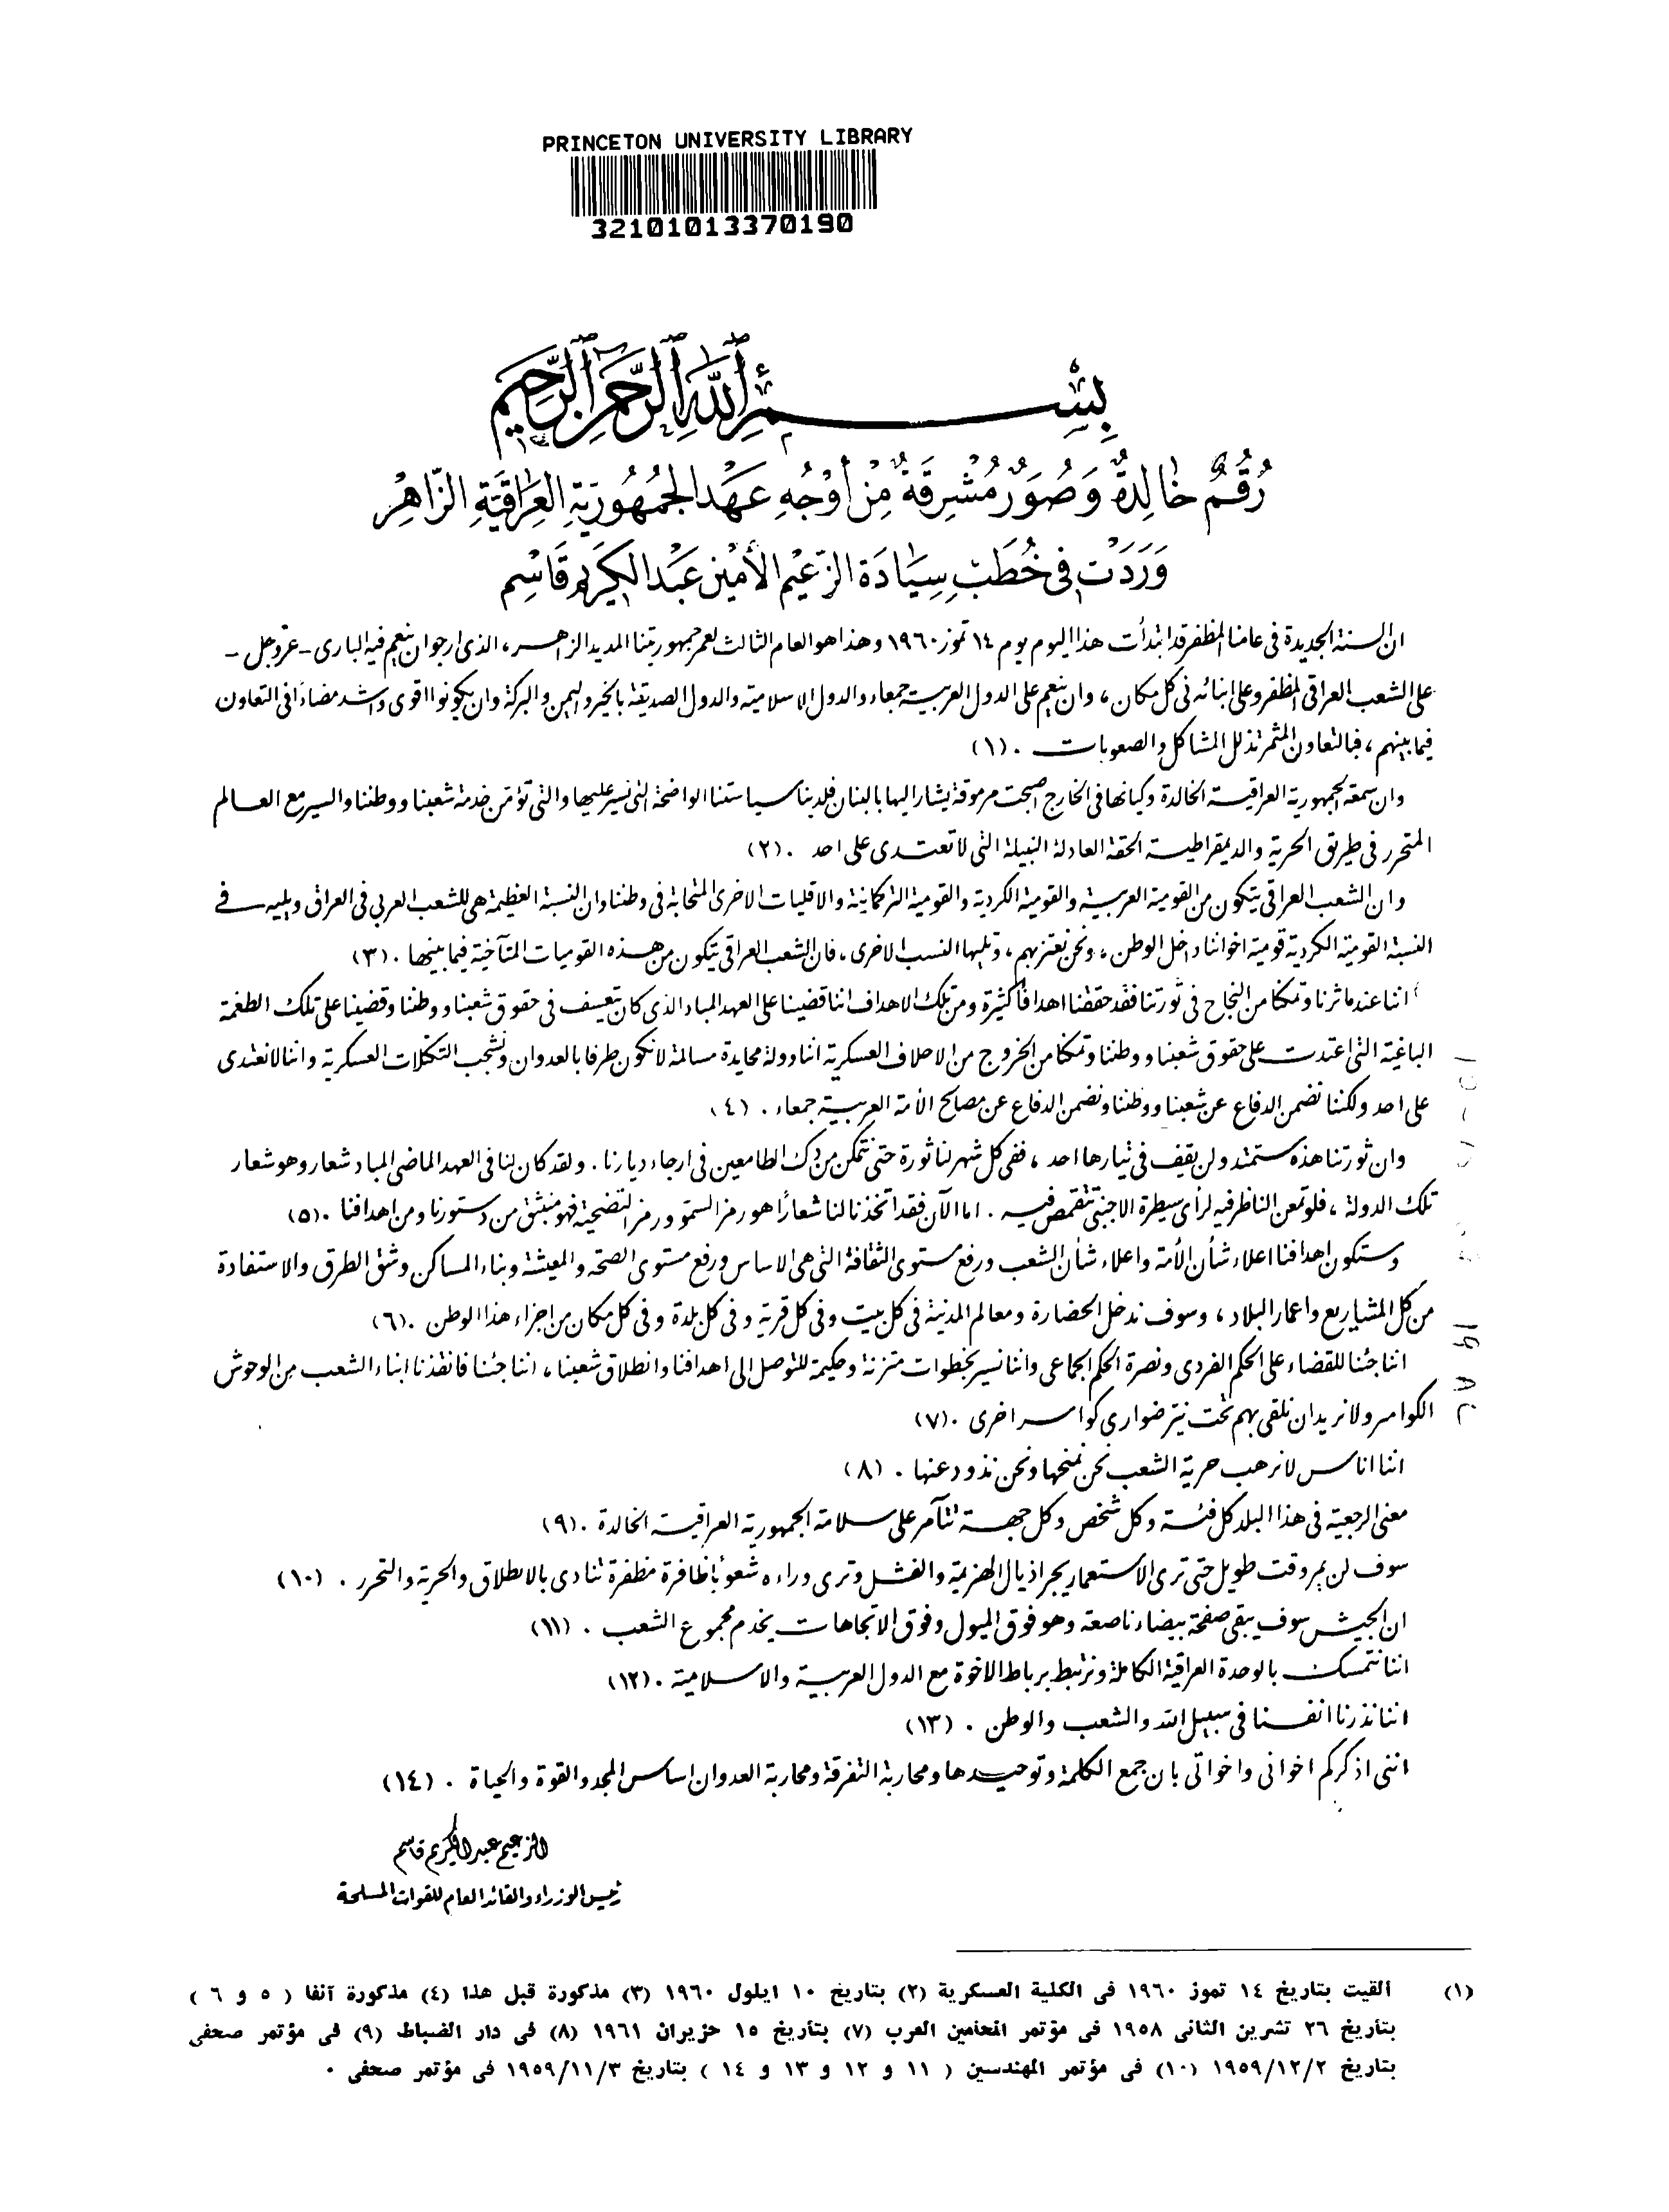 PRINCETON UNIVERSITY LIBRARY
32101013370190
بِسْمِ ٱللَّهِ ٱلرَّحْمَٰنِ ٱلرَّحِيمِ
رُقُمٌ خَالِدَةٌ وَصُوَرٌ مُشْرِقَةٌ مِنْ أَوْجُهِ عَهْدِ الجُمْهُورِيَّةِ العِرَاقِيَّةِ الزَّاهِرِ
وَرَدَتْ فِي خُطَبِ سِيَادَةِ الزَّعِيْمِ الأَمِيْنِ عَبْدِ الكَرِيمِ قَاسِم
ان السنة الجديدة فى عامنا المظفر قد ابتدأت هذا اليوم يوم ١٤ تموز ١٩٦٠ وهذا هو العام الثالث لعمر جمهوريتنا المديد الزاهر ، الذى ارجو ان ينعم فيه البارى - عز وجل -
على الشعب العراقى المظفر وعلى ابنائه فى كل مكان ، وان ينعم على الدول العربية جمعاء والدول الاسلامية والدول الصديقة بالخير واليمن والبركة وان يكونوا اقوى واشد مضاءً فى التعاون
فيما بينهم ، فبالتعاون المثمر تذلل المشاكل والصعوبات . (١)
وان سمعة الجمهورية العراقية الخالدة وكيانها فى الخارج اصبحت مرموقة يشار اليها بالبنان فلدينا سياستنا الواضحة التى نسير عليها والتى تؤمن خدمة شعبنا ووطننا والسير مع العالم
المتحرر فى طريق الحرية والديمقراطية الحقة العادلة النبيلة التى لا تعتدى على احد . (٢)
وان الشعب العراقى يتكون من القومية العربية والقومية الكردية والقومية التركمانية والاقليات الاخرى المتحابة فى وطننا وان النسبة العظيمة هى للشعب العربي فى العراق ويليه في
النسبة القومية الكردية قومية اخواننا داخل الوطن ، ونحن نعتز بهم ، وتليها النسب الاخرى ، فان الشعب العراقى يتكون من هذه القوميات المتآخية فيما بينها . (٣)
اننا عندما ثرنا وتمكنا من النجاح فى ثورتنا فقد حققنا اهدافاً كثيرة ومن تلك الاهداف اننا قضينا على العهد المباد الذى كان يتعسف فى حقوق شعبنا ووطننا وقضينا على تلك الطغمة
الباغية التى اعتدت على حقوق شعبنا ووطننا وتمكنا من الخروج من الاحلاف العسكرية اننا دولة محايدة مسالمة لا نكون طرفا بالعدوان ونشجب التكتلات العسكرية واننا لا نعتدى
على احد ولكننا نضمن الدفاع عن شعبنا ووطننا ونضمن الدفاع عن مصالح الأمة العربية جمعاء . (٤)
وان ثورتنا هذه ستمتد ولن يقف فى تيارها احد ، ففى كل شهر لنا ثورة حتى نتمكن من دك الطامعين فى ارجاء ديارنا . ولقد كان لنا فى العهد الماضى المباد شعار وهو شعار
تلك الدولة ، فلو تمعن الناظر فيه لرأى سيطرة الاجنبى تتقمص فيه . اما الآن فقد اتخذنا لنا شعاراً هو رمز السمو ورمز التضحية فهو منبثق من دستورنا ومن اهدافنا . (٥)
وستكون اهدافنا اعلاء شأن الأمة واعلاء شأن الشعب ورفع مستوى الثقافة التى هى الاساس ورفع مستوى الصحة والمعيشة وبناء المساكن وشق الطرق والاستفادة
من كل المشاريع واعمار البلاد ، وسوف ندخل الحضارة ومعالم المدنية فى كل بيت وفى كل قرية وفى كل بلدة وفى كل مكان من اجزاء هذا الوطن . (٦)
اننا جئنا للقضاء على الحكم الفردى ونصرة الحكم الجماعى واننا نسير بخطوات متزنة وحكيمة للتوصل الى اهدافنا وانطلاق شعبنا ، اننا جئنا فانقذنا ابناء الشعب من الوحوش
الكواسر ولا نريد ان نلقى بهم تحت نير ضوارى كواسر اخرى . (٧)
اننا اناس لا نرهب حرية الشعب نحن نمنحها ونحن نذود عنها . (٨)
معنى الرجعية فى هذا البلد كل فئة وكل شخص وكل جهة تتآمر على سلامة الجمهورية العراقية الخالدة . (٩)
سوف لن يمر وقت طويل حتى ترى الاستعمار يجر اذيال الهزيمة والفشل وترى وراءه شعوباً ظافرة مظفرة تنادى بالانطلاق والحرية والتحرر . (١٠)
ان الجيش سوف يبقى صفحة بيضاء ناصعة وهو فوق الميول وفوق الاتجاهات يخدم مجموع الشعب . (١١)
اننا نتمسك بالوحدة العراقية الكاملة ونرتبط برباط الاخوة مع الدول العربية والاسلامية . (١٢)
اننا نذرنا انفسنا فى سبيل الله والشعب والوطن . (١٣)
اننى اذكركم اخوانى واخواتى بان جمع الكلمة وتوحيدها ومحاربة التفرقة ومحاربة العدوان اساس المجد والقوة والحياة . (١٤)
الزعيم عبد الكريم قاسم
رئيس الوزراء والقائد العام للقوات المسلحة
(١) القيت بتاريخ ١٤ تموز ١٩٦٠ فى الكلية العسكرية (٢) بتاريخ ١٠ ايلول ١٩٦٠ (٣) مذكورة قبل هذا (٤) مذكورة آنفا ( ٥ و ٦ )
بتأريخ ٢٦ تشرين الثانى ١٩٥٨ فى مؤتمر المحامين العرب (٧) بتأريخ ١٥ حزيران ١٩٦١ (٨) فى دار الضباط (٩) فى مؤتمر صحفى
بتاريخ ١٩٥٩/١٢/٢ (١٠) فى مؤتمر المهندسين ( ١١ و ١٢ و ١٣ و ١٤ ) بتاريخ ١٩٥٩/١١/٣ فى مؤتمر صحفى .